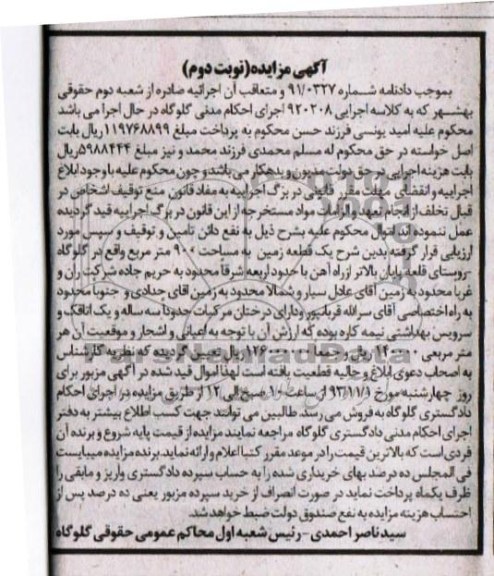 آگهی مزایده(نوبت دوم)
بموجب دادنامه شماره ۹۱/۰۳۲۷ و متعاقب آن اجرائیه صادره از شعبه دوم حقوقی
بهشهر که به کلاسه اجرایی ۹۲۰۲۰۸ اجرای احکام مدنی گلوگاه در حال اجرا می باشد
محکوم علیه امید یونسی فرزند حسن محکوم به پرداخت مبلغ ۱۱۹۷۶۸۸۹۹ریال بابت
اصل خواسته در حق محکوم له مسلم محمدی فرزند محمد و نیز مبلغ ۵۹۸۸۴۴۴ریال
بابت هزینه اجرایی در حق دولت مدیون و بدهکار می باشد و چون محکوم علیه با وجود ابلاغ
اجراییه و انقضای مهلت مقرر قانونی در برگ اجراییه به مفاد قانون منع توقیف اشخاص در
قبال تخلف از انجام تعهد و الزامات مواد مستخرجه از این قانون در برگ اجراییه قید گردیده
عمل ننموده اند اموال محکوم علیه بشرح ذیل به نفع دائن تامین و توقیف و سپس مورد
ارزیابی قرار گرفته بدین شرح یک قطعه زمین به مساحت ۹۰۰ متر مربع واقع در گلوگاه
-روستای قلعه پایان بالاتر از راه آهن با حدود اربعه شرقا محدود به حریم جاده شرکت ران و
غربا محدود به زمین آقای عادل سیار و شمالا محدود به زمین آقای جدادی و جنوبا محدود
به راه اختصاصی آقای سرالله قربانپور ودارای درختان مرکبات حدودا سه ساله و یک اتاقک و
سرویس بهداشتی نیمه کاره بوده که ارزش آن با توجه به اعیانی و اشجار و موقعیت آن هر
متر مربعی ریال و جمعا ریال تعیین گردیده که نظریه کارشناس
به اصحاب دعوی ابلاغ و حالیه قطعیت یافته است لهذا اموال قید شده در آگهی مزبور برای
روز چهارشنبه مورخ ۹۳/۱۱/۱ از ساعت ۱۰ صبح الی ۱۲ از طریق مزایده در اجرای احکام
دادگستری گلوگاه به فروش می رسد. طالبین می توانند جهت کسب اطلاع بیشتر به دفتر
اجرای احکام مدنی دادگستری گلوگاه مراجعه نمایند مزایده از قیمت پایه شروع و برنده آن
فردی است که بالاترین قیمت را در موعد مقرر کتبا اعلام و ارائه نماید. برنده مزایده میبایست
فی المجلس ده درصد بهای خریداری شده را به حساب سپرده دادگستری واریز و مابقی را
ظرف یکماه پرداخت نماید در صورت انصراف از خرید سپرده مزبور یعنی ده درصد پس از
احتساب هزینه مزایده به نفع صندوق دولت ضبط خواهد شد.
سید ناصر احمدی - رئیس شعبه اول محاکم عمومی حقوقی گلوگاه